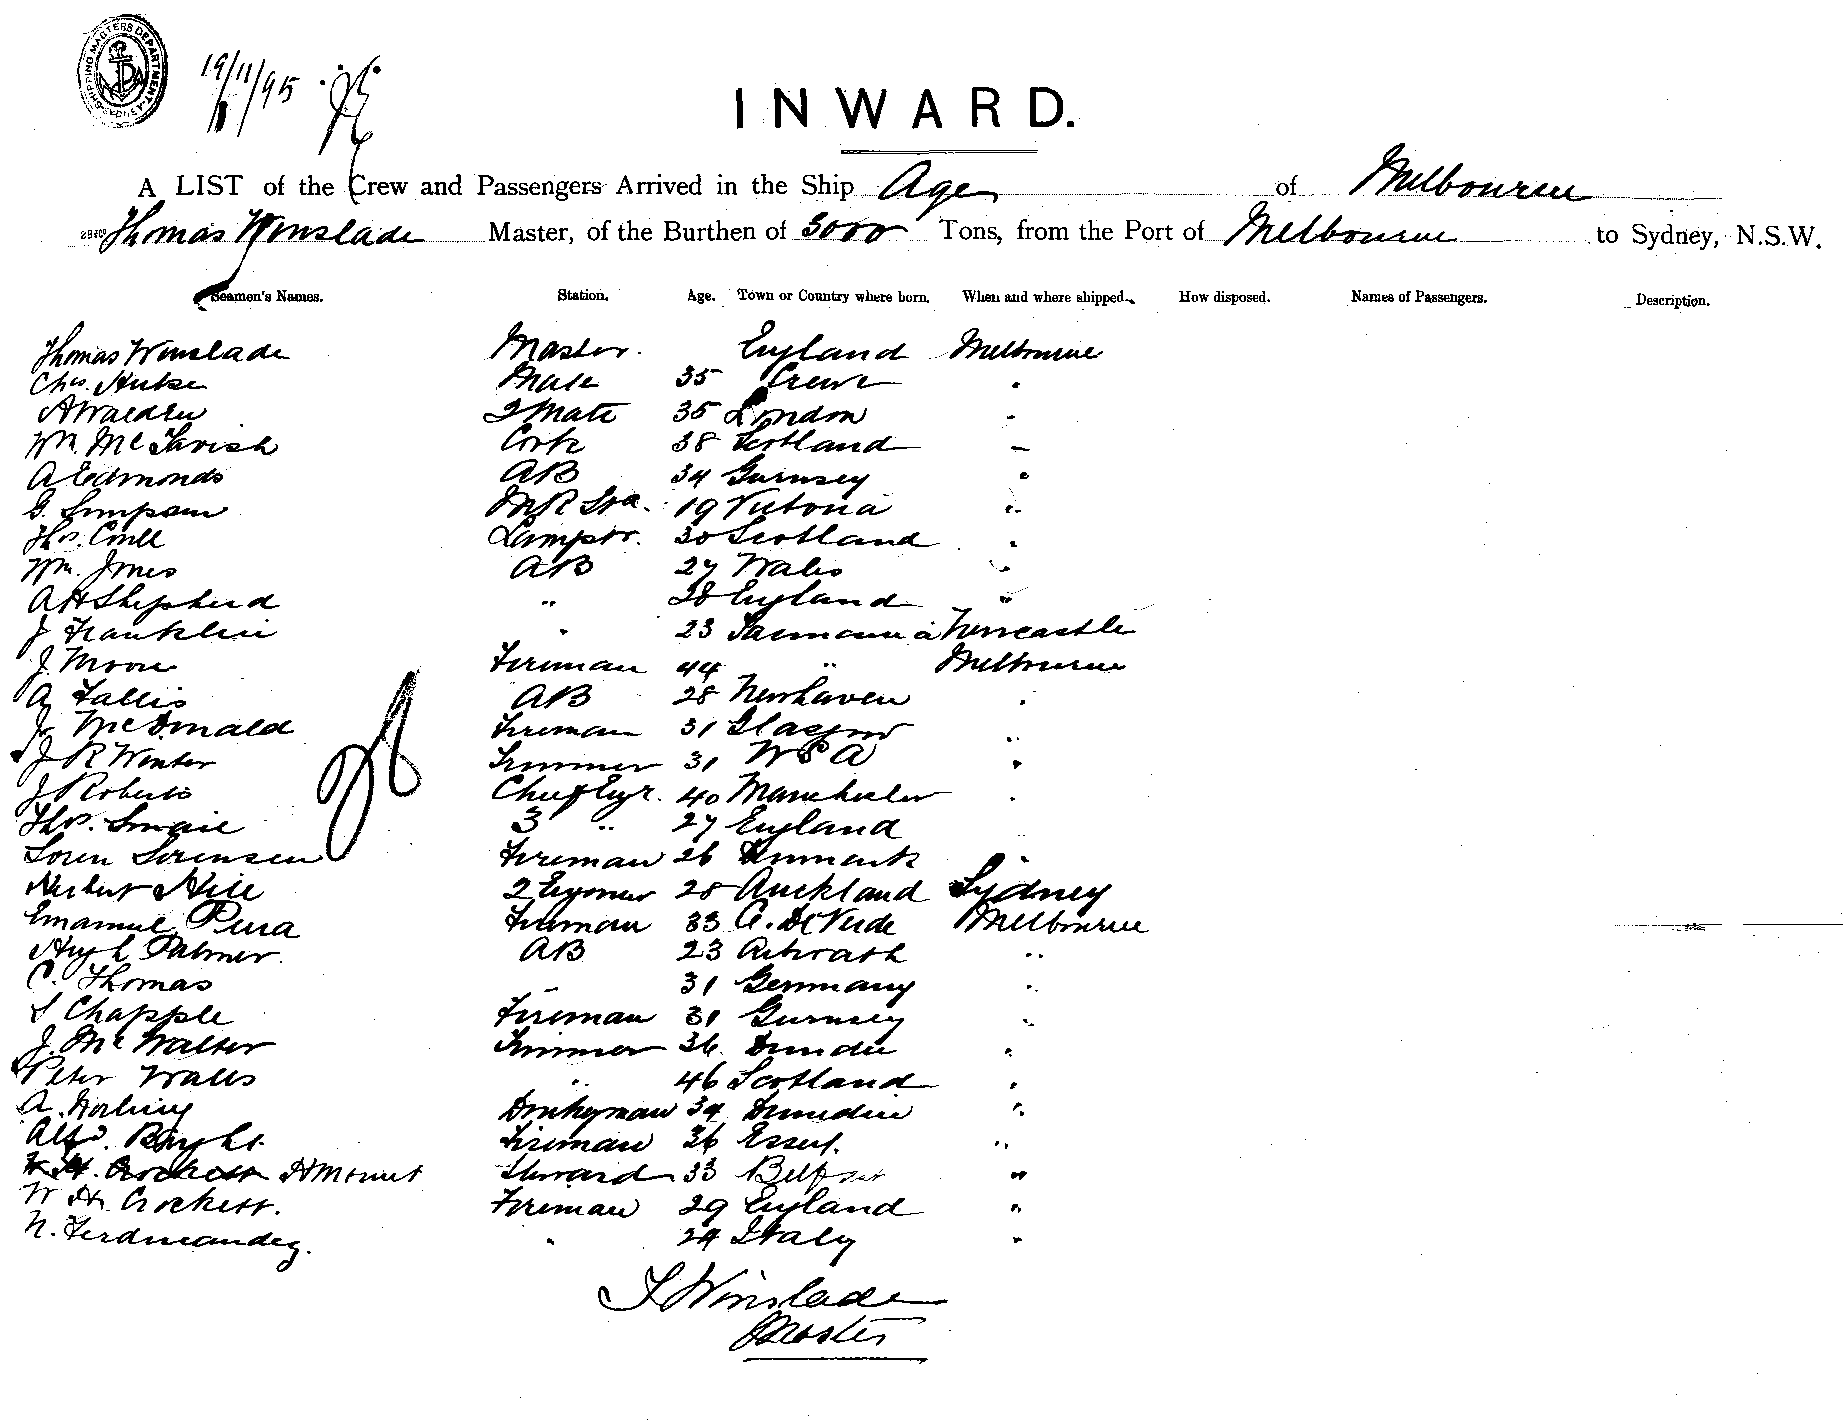 SHIPPING MASTERS DEPARTMENT
19/11/95
INWARD.
A LIST of the Crew and Passengers Arrived in the Ship Age of Melbourne
Thomas Winslade Master, of the Burthen of 3000 Tons, from the Port of Melbourne to Sydney, N.S.W.
Seamen's Names. Station. Age. Town or Country where born. When and where shipped. How disposed. Names of Passengers. Description.
Thomas Winslade Master. England Melbourne
Chas. Mate 35 Crewe "
A Walden 2 Mate 35 London "
Wm. McTavish Cook 38 Scotland "
A Edmonds AB 34 Gurnsey "
G. Simpson 19 Victoria "
Thos. Coull Lamptr. 30 Scotland "
Wm. Jones AB 27 Wales "
A H Shepherd " 28 England "
J Franklin " 23 Tasmania Newcastle
J. Moore Fireman 44 " Melbourne
A Fallis AB 28 Newhaven "
J. McDonald Fireman 31 Glasgow "
J R Winter Trimmer 31 U S A "
J Roberts Chief Engr. 40 Manchester "
Thos. Smaie 3 " 27 England "
Soren Sorensen Fireman 26 Denmark "
Herbert Hill 2 Engineer 28 Auckland Sydney
Emanuel Pera Fireman 33 C. De Verde Melbourne
Hugh Palmer. AB 23 Arbroath "
C. Thomas " 31 Germany "
S Chapple Fireman 31 Gurnsey "
J. McWalter Trimmer 36 Dundee "
Peter Walls " 46 Scotland "
A. Donkeyman 34 Dunedin "
Alfd. Bright. Fireman 36 Essex. "
W H. Crockett H Mount Steward 33 Belfast "
W H. Crockett. Fireman 29 England "
N. Ferdineandez. " 24 Italy "
T Winslade
Master